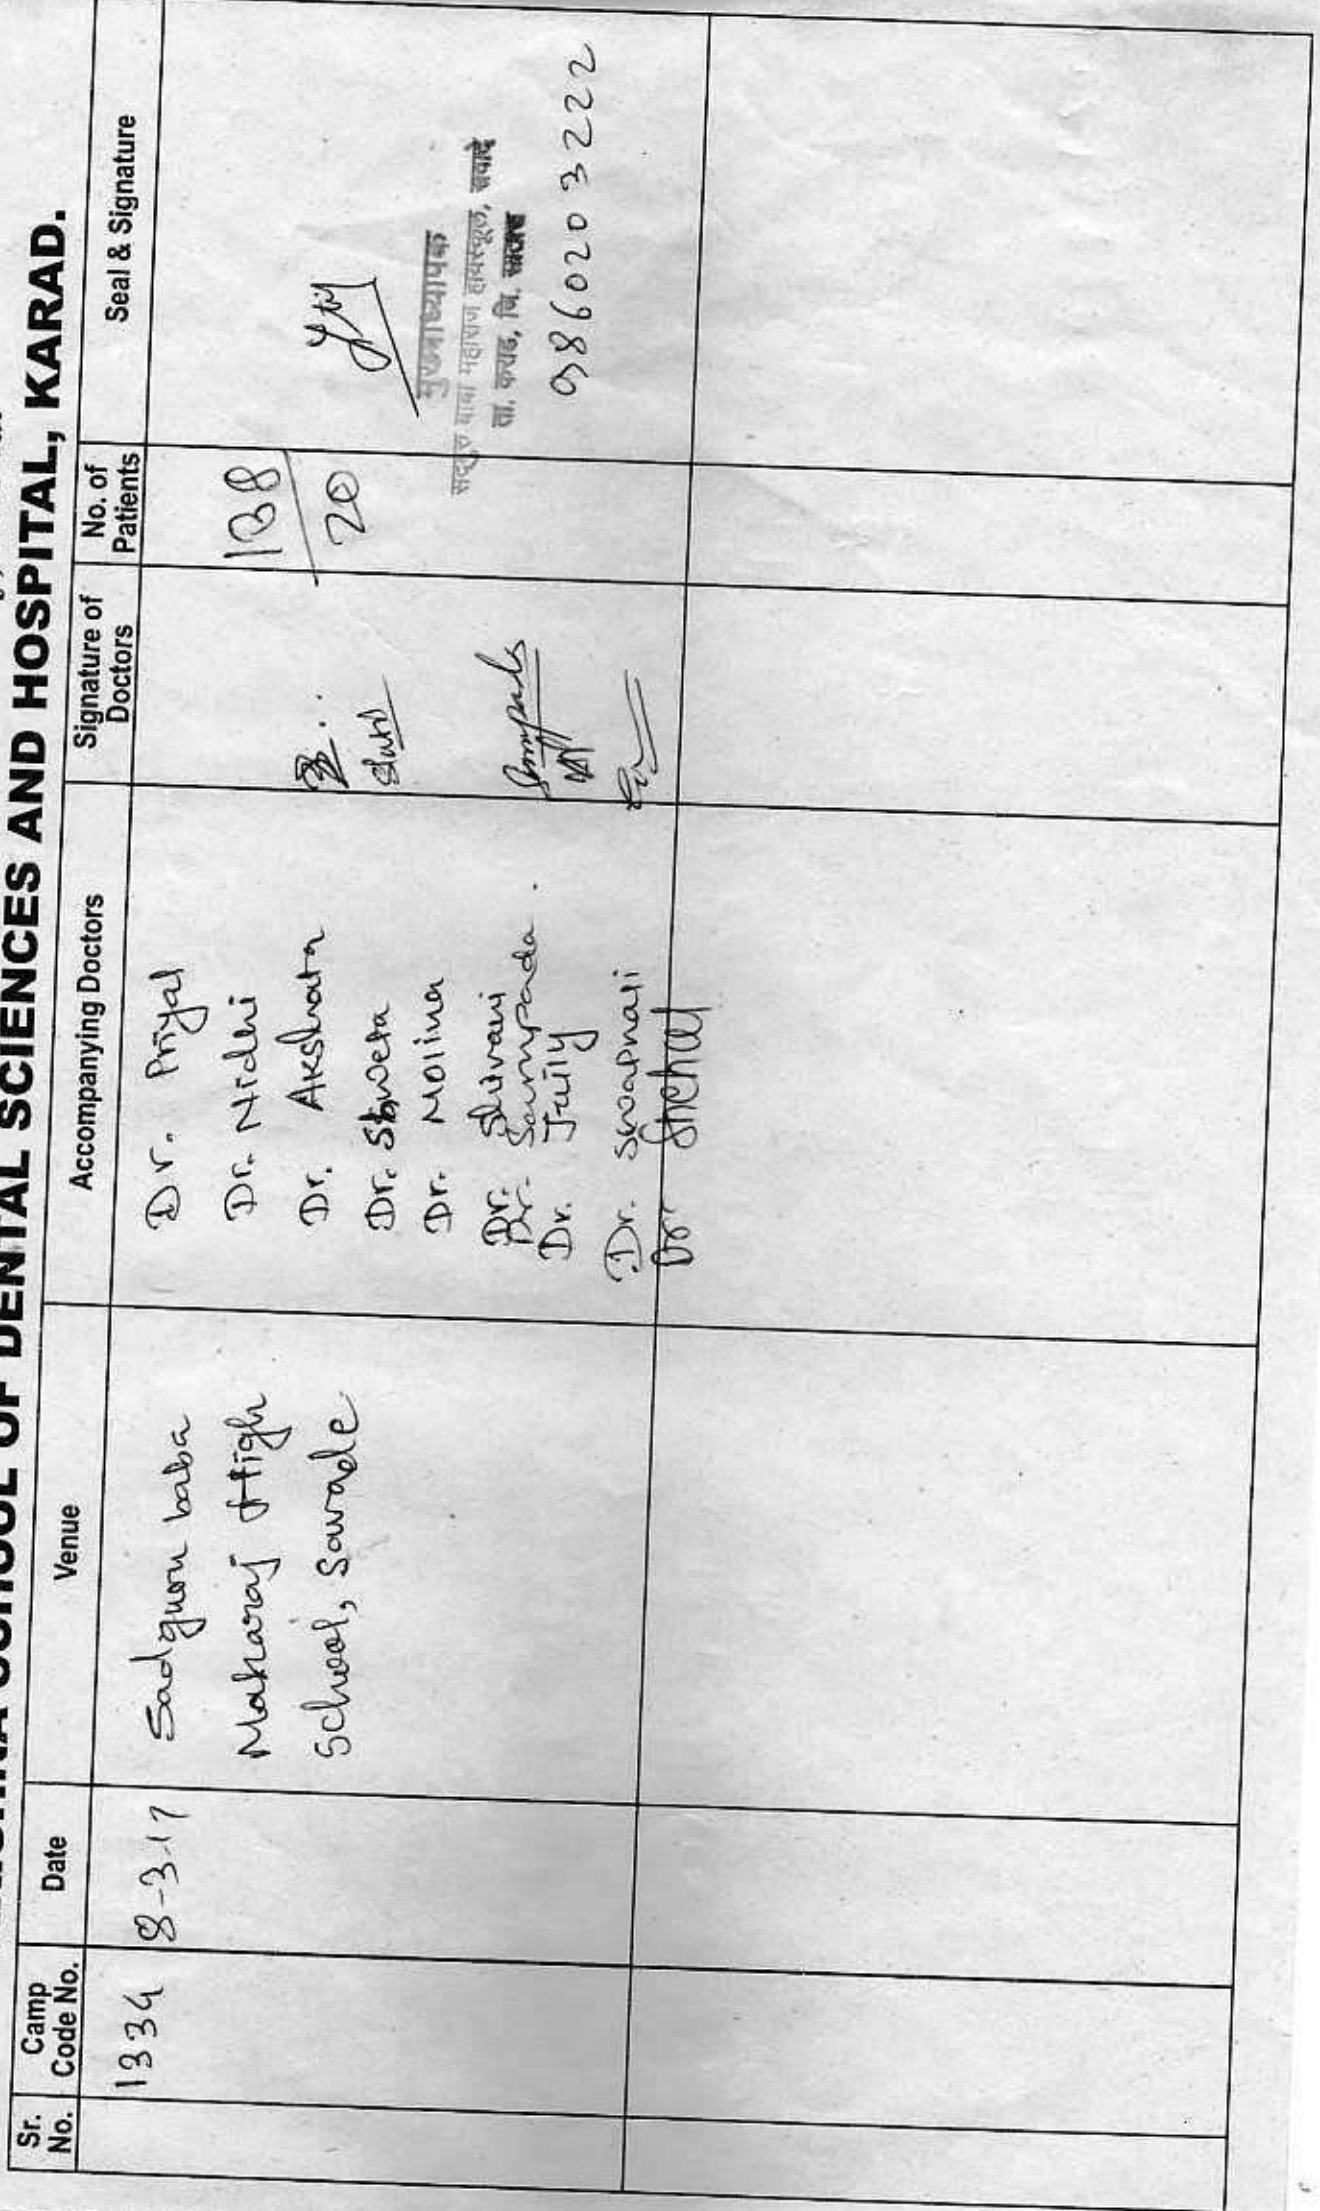 SCHOOL OF DENTAL SCIENCES AND HOSPITAL, KARAD.
Sr. No.
Camp Code No.
Date
Venue
Accompanying Doctors
Signature of Doctors
No. of Patients
Seal & Signature
1334
8-3-17
Sadguru baba
Maharaj High
School, Savade
Dr. Priyal
Dr. Nidhi
Dr. Akshata
Dr. Shweta
Dr. Molina
Dr. Shivani
Dr. Sampada.
Dr. Juily
Dr. Swapnali
Dr Snehal
138
20
मुख्याध्यापक
9860203222